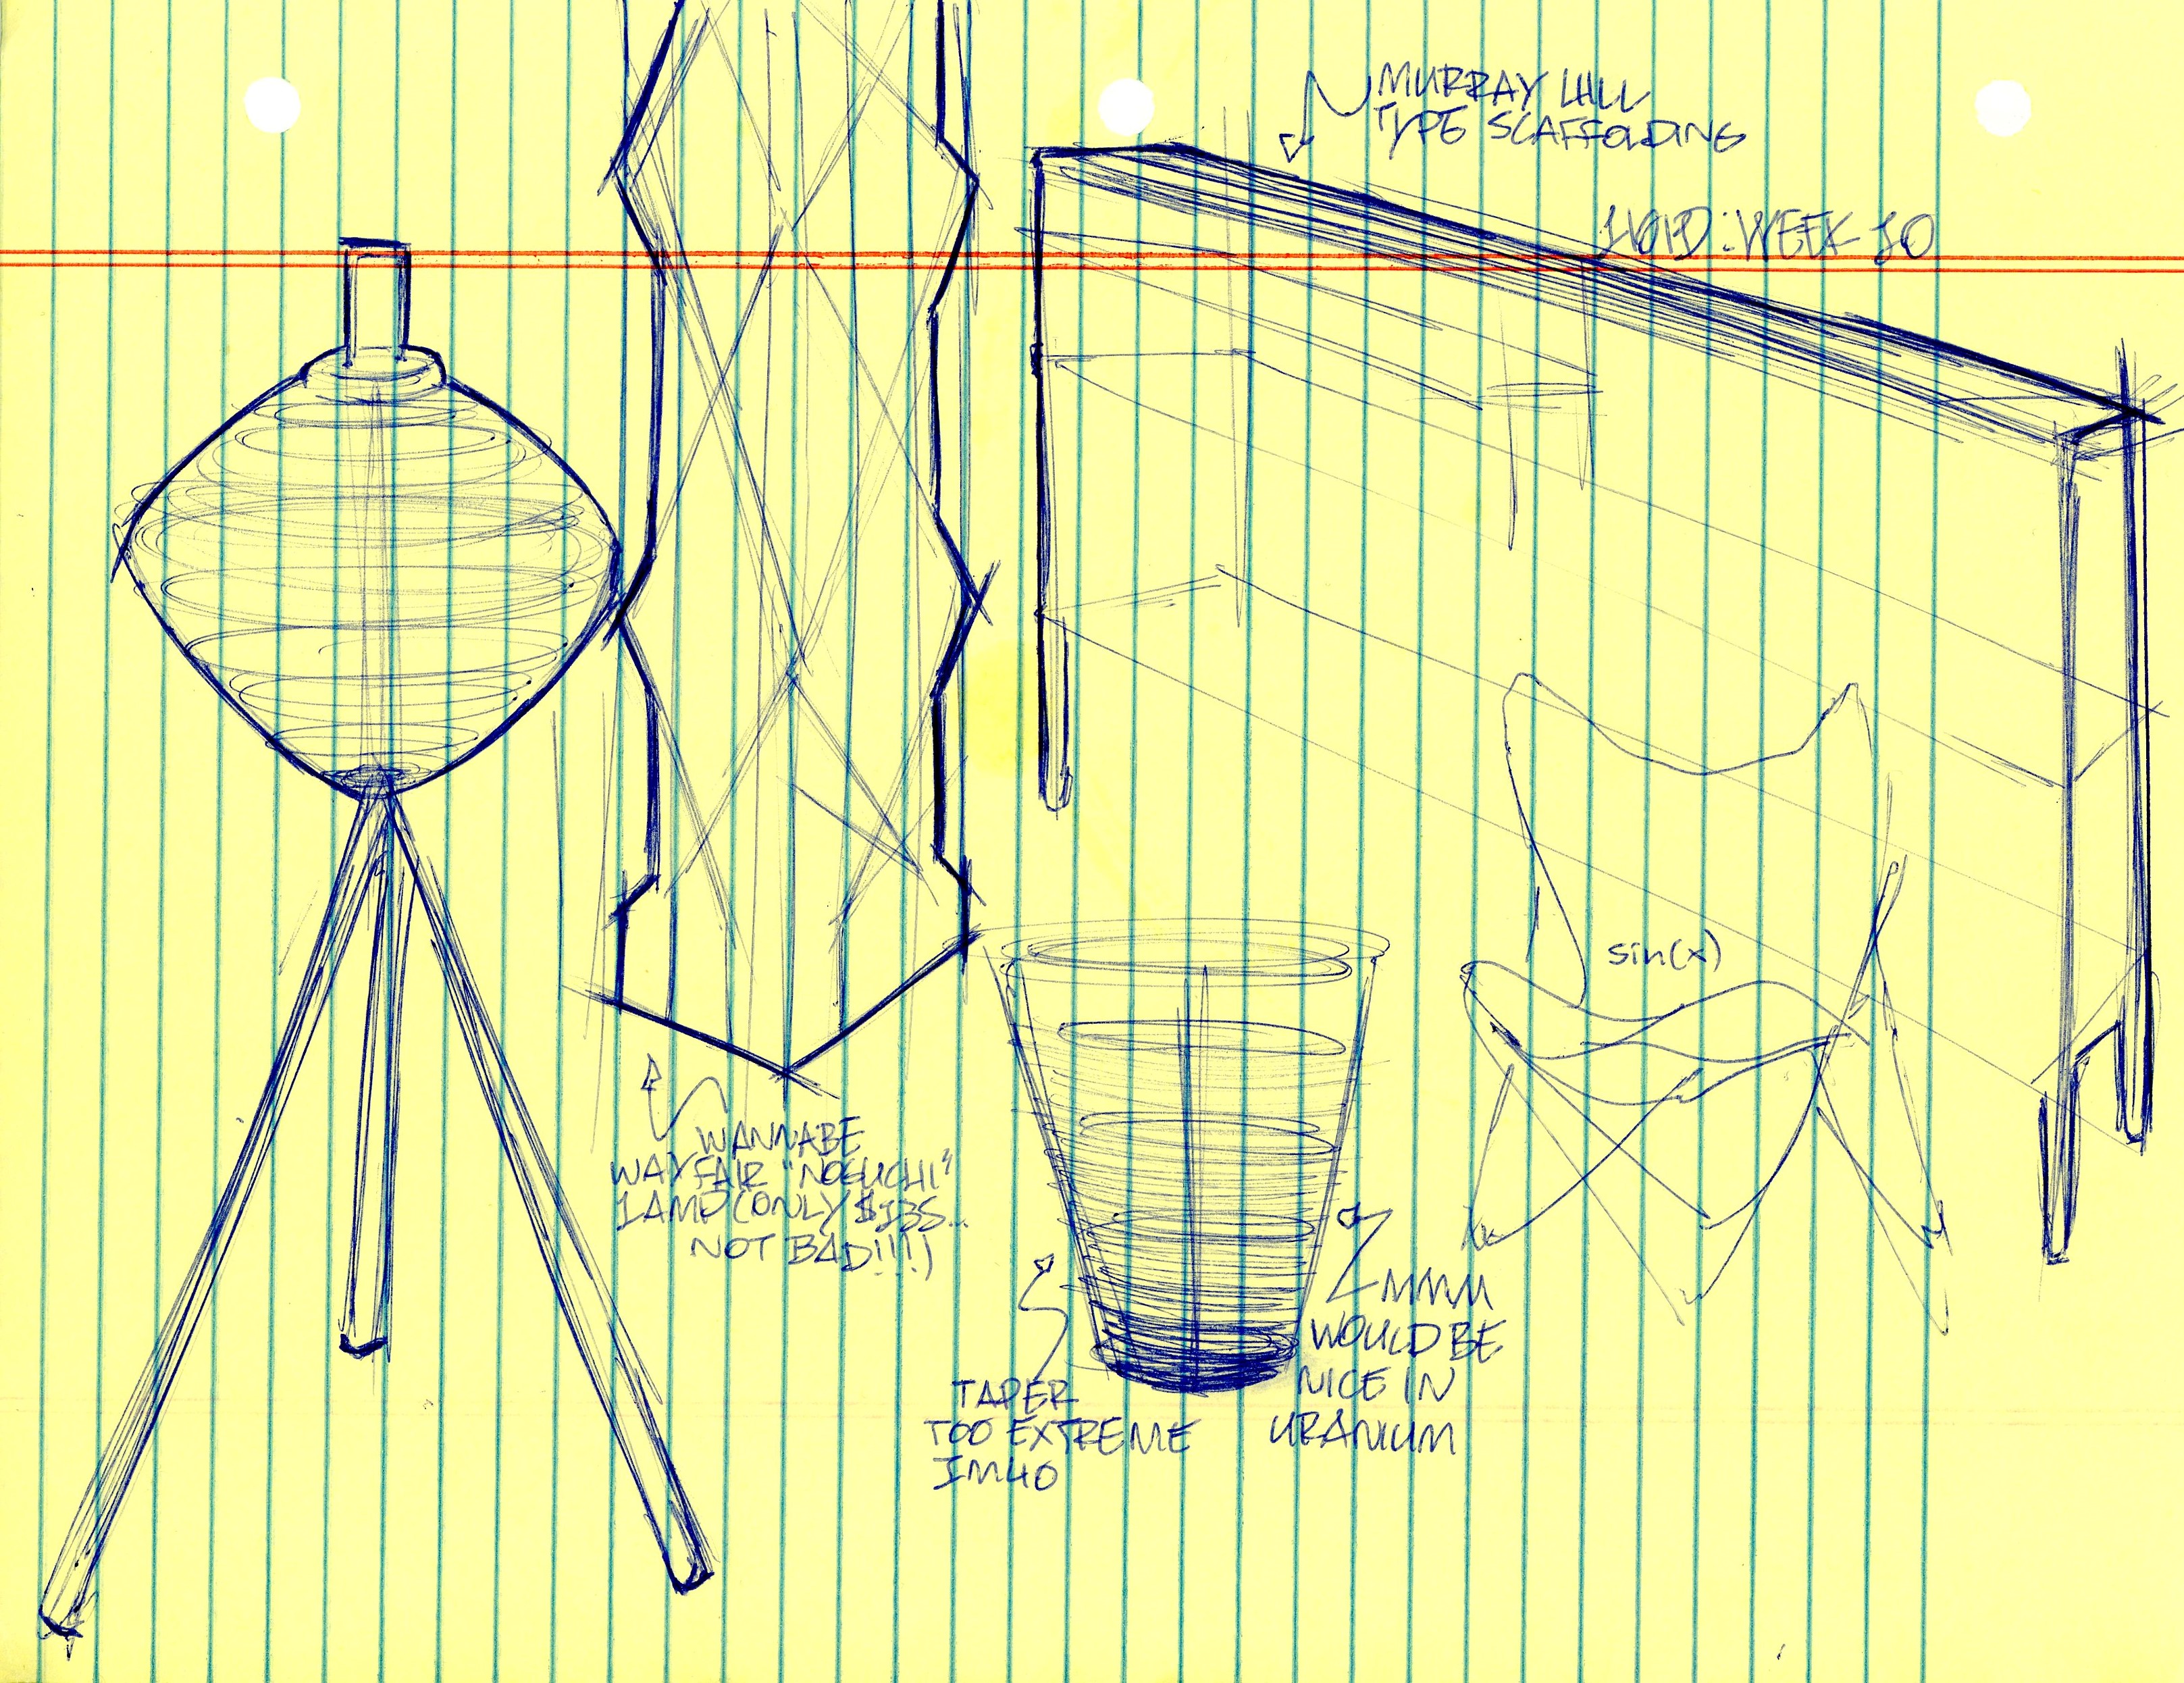 MURRAY HILL
TYPE SCAFFOLDING
WEEK 10
sin(x)
WANNABE
WAYFAIR "NOGUCHI"
LAMP (ONLY $135...
NOT BAD!!!)
MMM
WOULD BE
NICE IN
URANIUM
TAPER
TOO EXTREME
IMHO